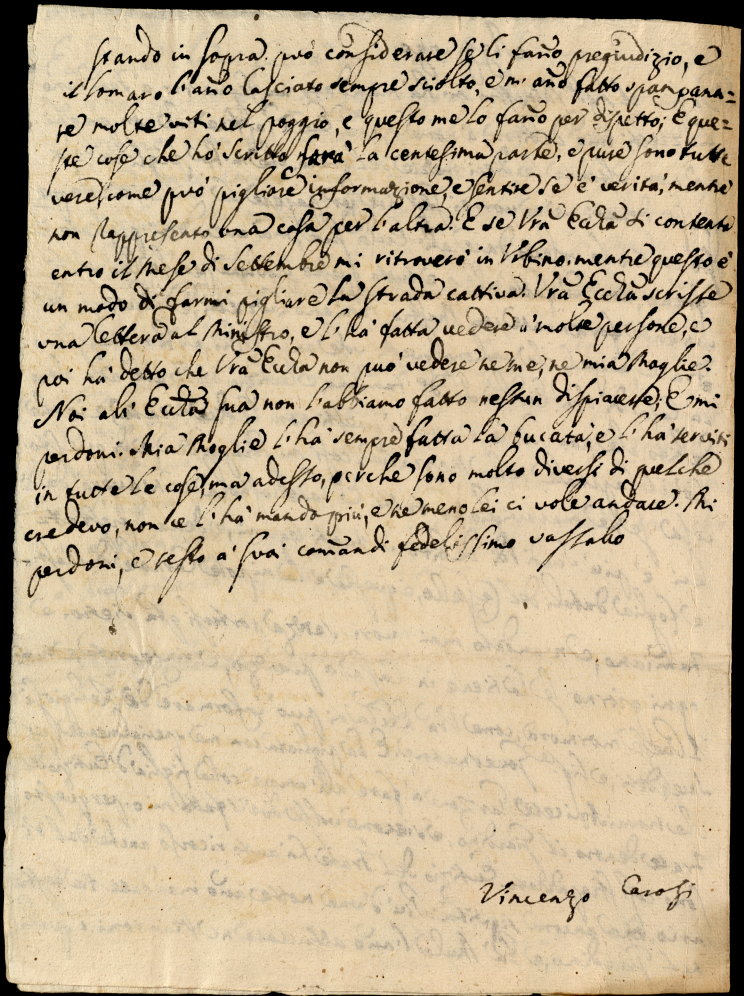 stando in sopra. può considerare se li fan̄o pregiudizio, e
il somaro l'an̄o lasciato sempre sciolto, e mi an̄o fatto spampana=
re molte viti nel poggio, e questo me lo fan̄o per dispetto; E que=
ste cose che hò scritto sarà la centesima parte, e pure sono tutte
vere, come può pigliare informazione, e sentire se è verità, mentre
non rappresento una cosa per l'altra. E se Vr̄a Eccl̄a si contenta
entro il Mese di Settembre mi ritroverò in Urbino. mentre questo è
un modo di farmi pigliare la strada cattiva. Vr̄a Eccl̄a scrisse
una lettera al Ministro, e l'hà fatta vedere à molte persone, e
poi hà detto che Vr̄a Eccl̄a non può vedere ne me, ne mia Moglie.
Noi all' Eccl̄a sua non l'abbiamo fatto nessun dispiacere; E mi
perdoni. Mia Moglie l'hà sempre fatta la bucata, e l'hà serviti
in tutte le cose, ma adesso, perche sono molto diversi di quelche
credevo, non ce l'hà mando più, e ne meno lei ci vole andare. Mi
perdoni, e resto à suoi coman̄di fedelissimo vassallo
Vincenzo